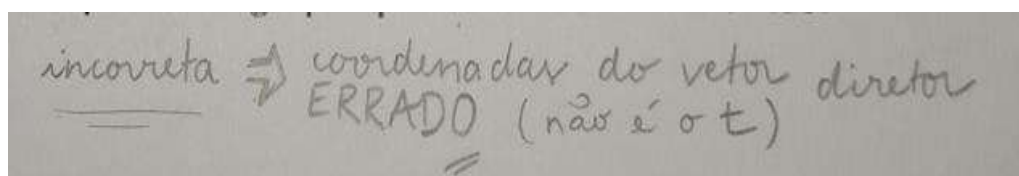 incorreta ⇒ coordenadas do vetor diretor
ERRADO (não é o t)